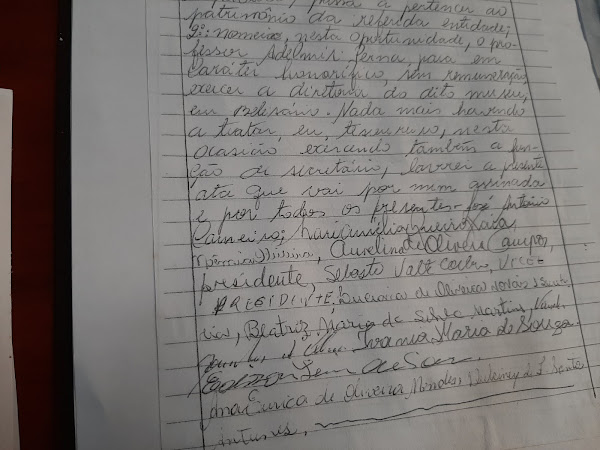 passa a pertencer ao
patrimônio da referida entidade;
2º: nomeio, nesta oportunidade, o pro-
fessor Adelmir Perna, para em
caráter honorífico, sem remuneração
exercer a diretoria do dito museu,
em Belisário. Nada mais havendo
a tratar, eu, tesoureiro, nesta
ocasião exercendo também a fun-
ção de secretário, lavrei a presente
ata que vai por mim assinada
e por todos os presentes - José Antônio
Carneiro;
Aurelina de Oliveira
presidente, Sebasto Valte Coelho, VICEE
PREGIDINTE, de Oliveira
Beatriz Maria da Silva Martins,
Ivania Maria de Souza.
Ana Eurica de Oliveira Mendes, Santos
Antunes,